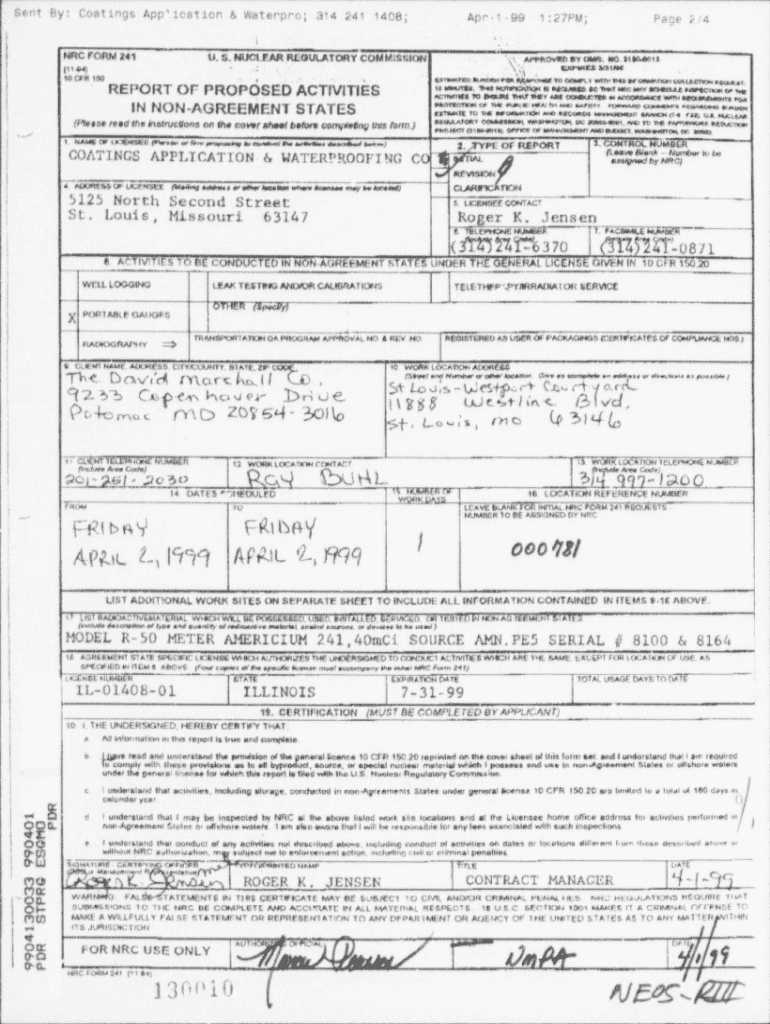 Sent By: Coatings Application & Waterpro; 314 241 1408; Apr-1-99 1:27PM; Page 2/4
NRC FORM 241
(11-94)
10 CFR 150
U. S. NUCLEAR REGULATORY COMMISSION
REPORT OF PROPOSED ACTIVITIES
IN NON-AGREEMENT STATES
(Please read the instructions on the cover sheet before completing this form.)
APPROVED BY OMB: NO. 3150-0013
EXPIRES
ESTIMATED BURDEN PER RESPONSE TO COMPLY WITH THIS INFORMATION COLLECTION REQUEST:
15 MINUTES. THIS NOTIFICATION IS REQUIRED SO THAT NRC MAY SCHEDULE INSPECTION OF THE
ACTIVITIES TO ENSURE THAT THEY ARE CONDUCTED IN ACCORDANCE WITH REQUIREMENTS FOR
PROTECTION OF THE PUBLIC HEALTH AND SAFETY. FORWARD COMMENTS REGARDING BURDEN
ESTIMATE TO THE INFORMATION AND RECORDS MANAGEMENT BRANCH U.S. NUCLEAR
REGULATORY COMMISSION, WASHINGTON, DC AND TO THE PAPERWORK REDUCTION
PROJECT OFFICE OF MANAGEMENT AND BUDGET, WASHINGTON, DC 20503.
1. NAME OF LICENSEE (Person or firm proposing to conduct the activities described below)
COATINGS APPLICATION & WATERPROOFING CO
2. TYPE OF REPORT
INITIAL
REVISION
CLARIFICATION
3. CONTROL NUMBER
(Leave Blank - Number to be
assigned by NRC)
4. ADDRESS OF LICENSEE (Mailing address or other location where licensee may be located)
5125 North Second Street
St. Louis, Missouri 63147
5. LICENSEE CONTACT
Roger K. Jensen
6. TELEPHONE NUMBER
(Include Area Code)
(314)241-6370
7. FACSIMILE NUMBER
(Include Area Code)
(314)241-0871
8. ACTIVITIES TO BE CONDUCTED IN NON-AGREEMENT STATES UNDER THE GENERAL LICENSE GIVEN IN 10 CFR 150.20
WELL LOGGING
LEAK TESTING AND/OR CALIBRATIONS
TELETHERAPY/IRRADIATOR SERVICE
X PORTABLE GAUGES
OTHER (Specify)
RADIOGRAPHY ⇒
TRANSPORTATION QA PROGRAM APPROVAL NO. & REV. NO.
REGISTERED AS USER OF PACKAGINGS (CERTIFICATES OF COMPLIANCE NOS.)
9. CLIENT NAME, ADDRESS, CITY/COUNTY, STATE, ZIP CODE
The David Marshall Co.
9233 Copenhaver Drive
Potomac MD 20854-3016
10. WORK LOCATION ADDRESS
(Street and Number or other location. Give as complete an address or directions as possible.)
St Louis-Westport Courtyard
11888 Westline Blvd,
St. Louis, mo 63146
11. CLIENT TELEPHONE NUMBER
(Include Area Code)
201-251-2030
12. WORK LOCATION CONTACT
ROY BUHL
13. WORK LOCATION TELEPHONE NUMBER
(Include Area Code)
314 997-1200
14. DATES SCHEDULED
15. NUMBER OF
WORK DAYS
16. LOCATION REFERENCE NUMBER
FROM
FRIDAY
APRIL 2, 1999
TO
FRIDAY
APRIL 2, 1999
1
LEAVE BLANK FOR INITIAL NRC FORM 241 REQUESTS
NUMBER TO BE ASSIGNED BY NRC
000781
LIST ADDITIONAL WORK SITES ON SEPARATE SHEET TO INCLUDE ALL INFORMATION CONTAINED IN ITEMS 9-16 ABOVE.
17. LIST RADIOACTIVE MATERIAL, WHICH WILL BE POSSESSED, USED, INSTALLED, SERVICED, OR TESTED IN NON-AGREEMENT STATES
(Include description of type and quantity of radioactive material, sealed sources, or devices to be used.)
MODEL R-50 METER AMERICIUM 241,40mCi SOURCE AMN.PE5 SERIAL # 8100 & 8164
18. AGREEMENT STATE SPECIFIC LICENSE WHICH AUTHORIZES THE UNDERSIGNED TO CONDUCT ACTIVITIES WHICH ARE THE SAME, EXCEPT FOR LOCATION OF USE, AS
SPECIFIED IN ITEM 8 ABOVE. (Four copies of the specific license must accompany the initial NRC Form 241)
LICENSE NUMBER
IL-01408-01
STATE
ILLINOIS
EXPIRATION DATE
7-31-99
TOTAL USAGE DAYS TO DATE
19. CERTIFICATION (MUST BE COMPLETED BY APPLICANT)
I, THE UNDERSIGNED, HEREBY CERTIFY THAT:
a. All information in this report is true and complete.
b. I have read and understand the provision of the general license 10 CFR 150.20 reprinted on the cover sheet of this form set; and I understand that I am required
to comply with these provisions as to all byproduct, source, or special nuclear material which I possess and use in non-Agreement States or offshore waters
under the general license for which this report is filed with the U.S. Nuclear Regulatory Commission.
c. I understand that activities, including storage, conducted in non-Agreements States under general license 10 CFR 150.20 are limited to a total of 180 days in
calendar year.
d. I understand that I may be inspected by NRC at the above listed work site locations and at the Licensee home office address for activities performed in
non-Agreement States or offshore waters. I am also aware that I will be responsible for any fees associated with such inspections.
e. I understand that conduct of any activities not described above, including conduct of activities on dates or locations different from those described above or
without NRC authorization, may subject me to enforcement action, including civil or criminal penalties.
SIGNATURE - CERTIFYING OFFICER
Roger K. Jensen
TYPED/PRINTED NAME
ROGER K. JENSEN
TITLE
CONTRACT MANAGER
DATE
4-1-99
WARNING: FALSE STATEMENTS IN THIS CERTIFICATE MAY BE SUBJECT TO CIVIL AND/OR CRIMINAL PENALTIES. NRC REGULATIONS REQUIRE THAT
SUBMISSIONS TO THE NRC BE COMPLETE AND ACCURATE IN ALL MATERIAL RESPECTS. 18 U.S.C. SECTION 1001 MAKES IT A CRIMINAL OFFENSE TO
MAKE A WILLFULLY FALSE STATEMENT OR REPRESENTATION TO ANY DEPARTMENT OR AGENCY OF THE UNITED STATES AS TO ANY MATTER WITHIN
ITS JURISDICTION
FOR NRC USE ONLY
AUTHORIZING OFFICIAL
DATE
4/1/99
NRC FORM 241 (11-94)
130010
NEOS-RIII
9904130033 990401
PDR STPRG ESGMO
PDR